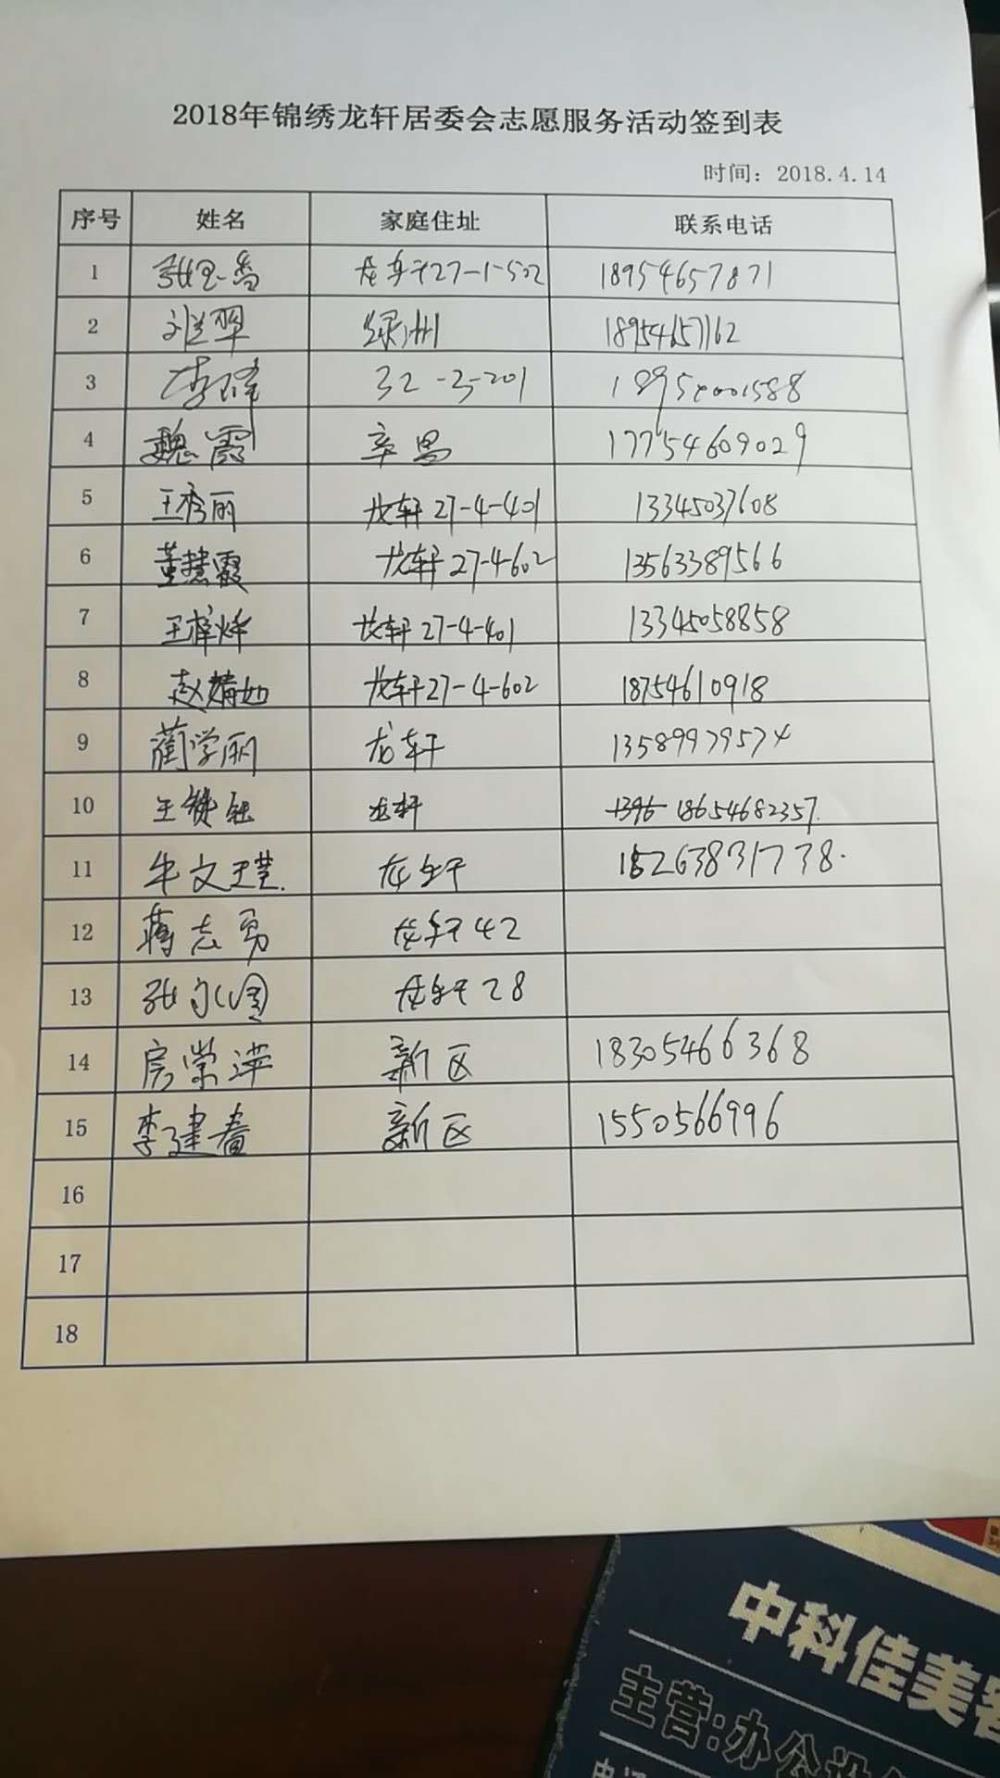 2018年锦绣龙轩居委会志愿服务活动签到表
时间：2018.4.14
序号 姓名 家庭住址 联系电话
1 张玉香 龙轩27-1-502 18954657871
2 绿洲 18954657162
3 李峰 32-3-201
4 魏霞 辛昌 17754609029
5 王秀丽 龙轩27-4-401 13345037608
6 董慧霞 龙轩27-4-602 13563389566
7 王梓烨 龙轩27-4-401 13345058858
8 赵婧如 龙轩27-4-602 18754610918
9 蔺学丽 龙轩 13589979574
10 王 龙轩 1396 18654682357
11 牛文 龙轩 18263831738
12 蒋志勇 龙轩42
13 张永 龙轩28
14 房荣萍 新区 18305466368
15 李建春 新区 1550566996
16
17
18
中科佳美
主营:办公设